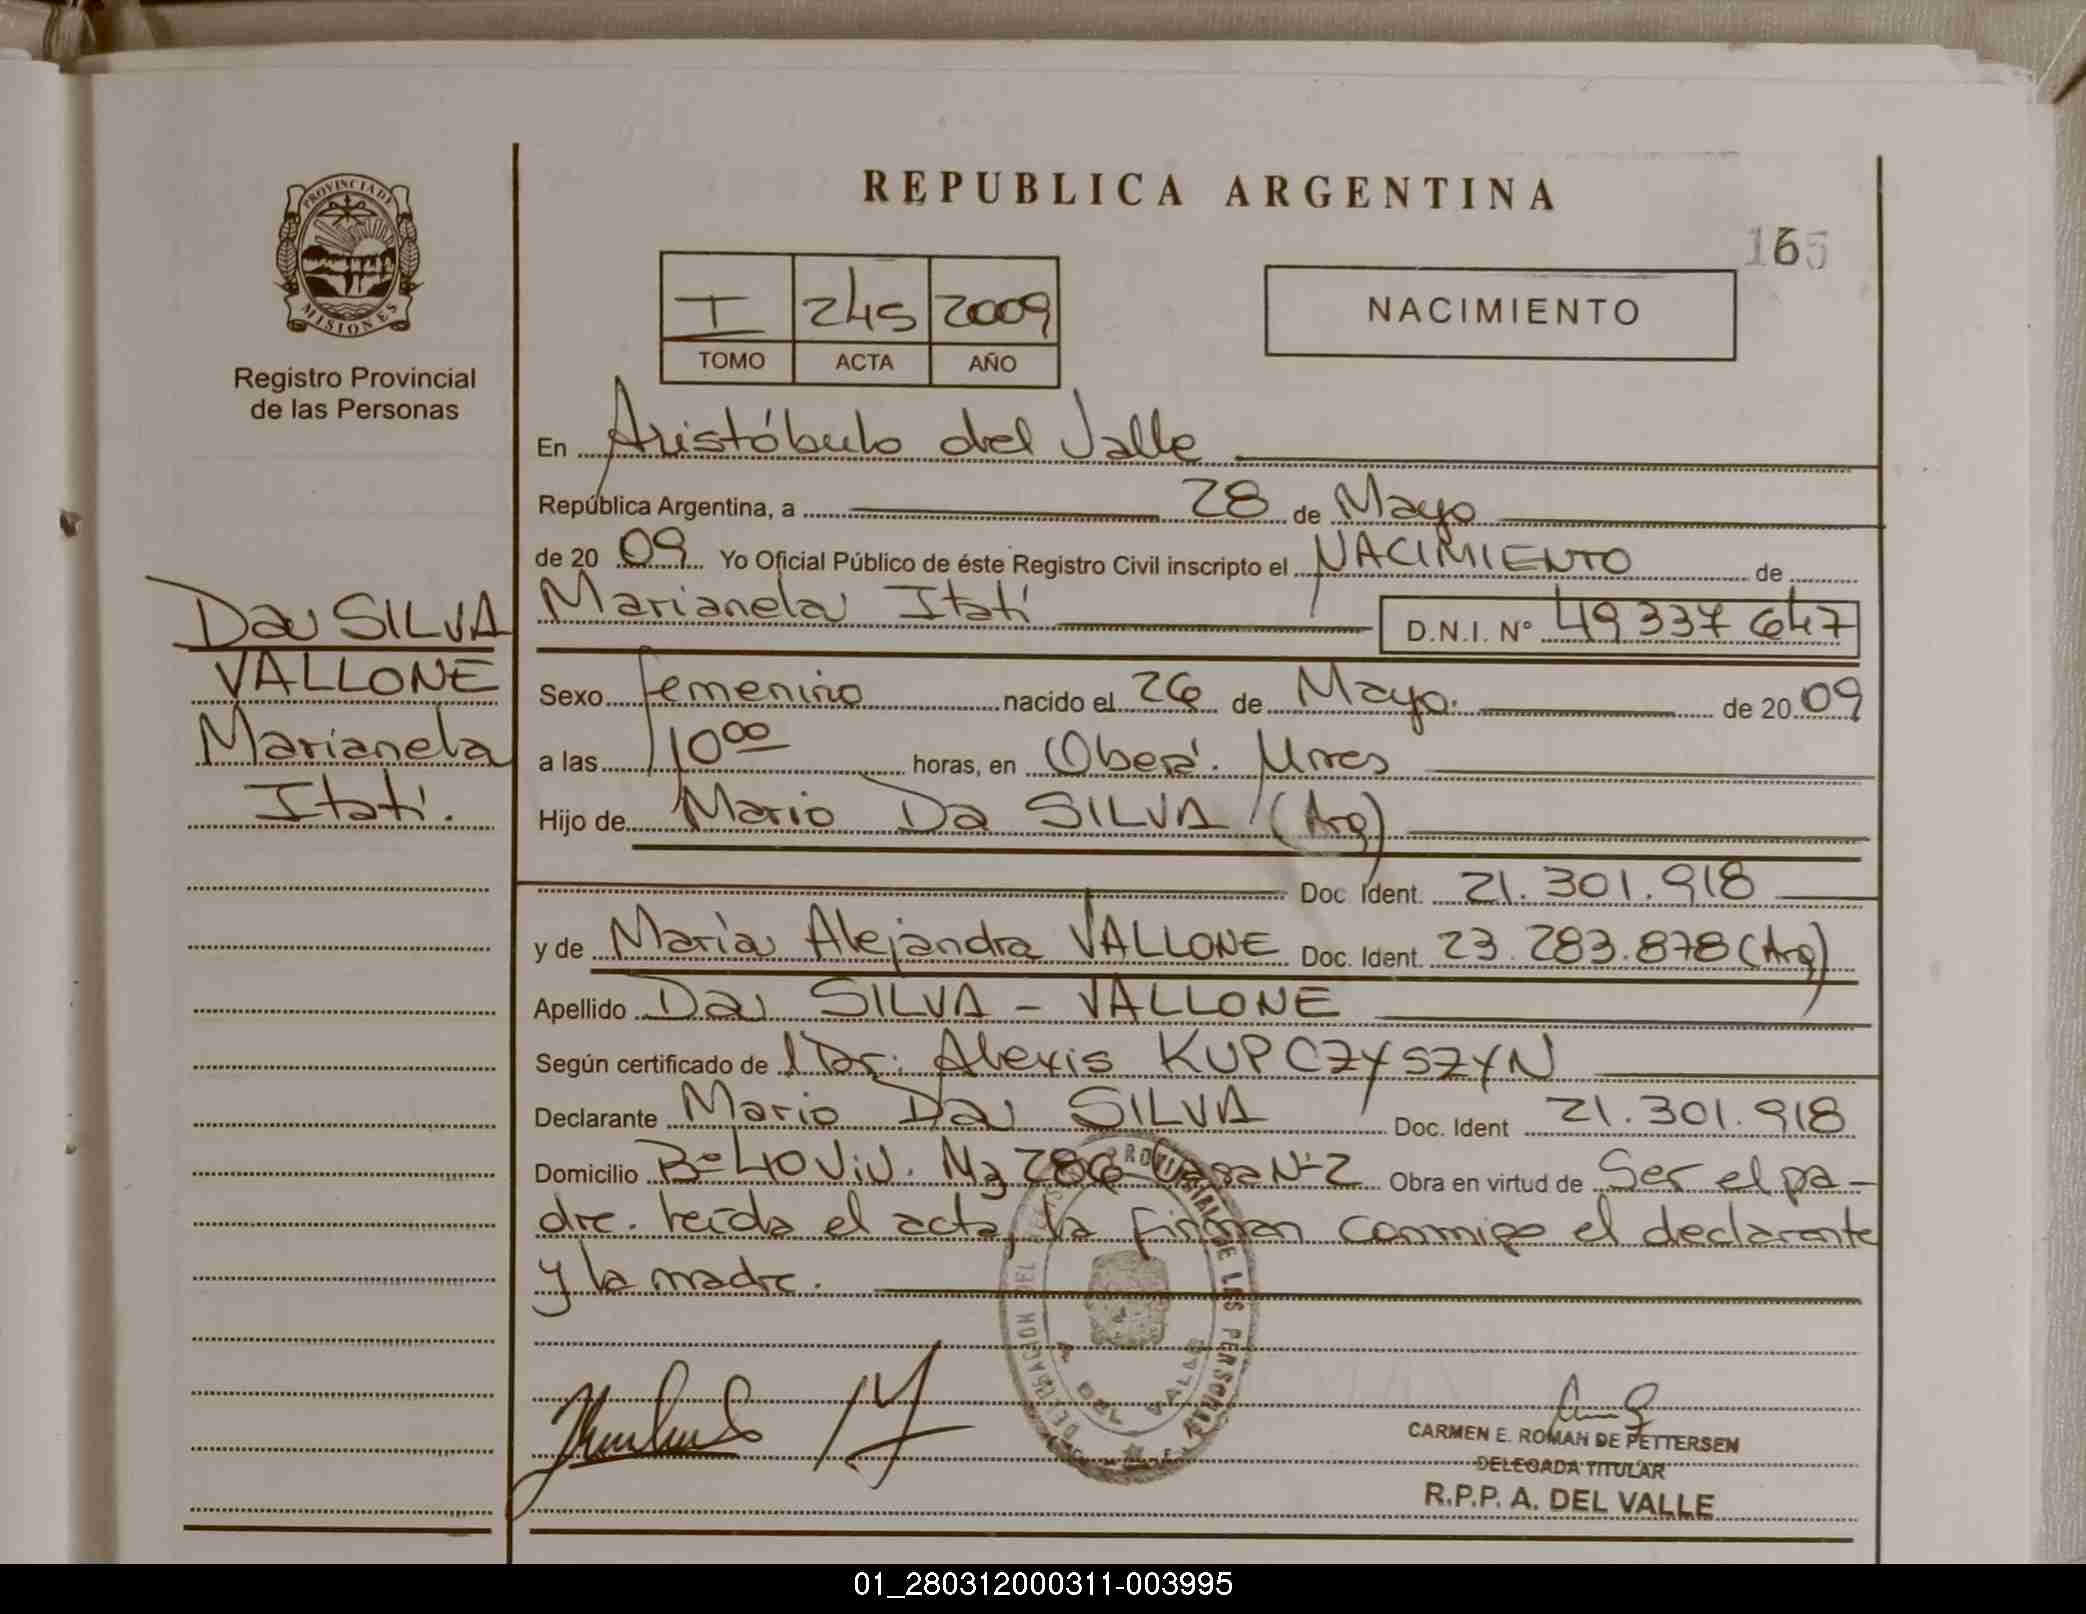 REPUBLICA ARGENTINA
165
PROVINCIA DE
MISIONES
Registro Provincial
de las Personas
I 245 2009
TOMO ACTA AÑO
NACIMIENTO
En Aristóbulo del Valle
República Argentina, a 28 de Mayo
de 2009 Yo Oficial Público de éste Registro Civil inscripto el NACIMIENTO de
Marianela Itatí D.N.I. N° 49337647
Da SILVA
VALLONE
Marianela
Itatí.
Sexo femenino nacido el 26 de Mayo. de 2009
a las 10 00 horas, en Oberá. Mnes
Hijo de Mario Da SILVA (Arg)
Doc. Ident. 21.301.918
y de María Alejandra VALLONE Doc. Ident. 23.283.878 (Arg)
Apellido Da SILVA - VALLONE
Según certificado de Dr. Alexis KUPCZYSZYN
Declarante Mario Da SILVA Doc. Ident 21.301.918
Domicilio B° 40 Viv. Mz 286 Casa N° 2 Obra en virtud de Ser el pa-
dre. Leída el acta, la firman conmigo el declarante
y la madre.
DELEGACION DEL REGISTRO PROVINCIAL DE LAS PERSONAS
A. DEL VALLE
CARMEN E. ROMAN DE PETTERSEN
DELEGADA TITULAR
R.P.P. A. DEL VALLE
01_280312000311-003995